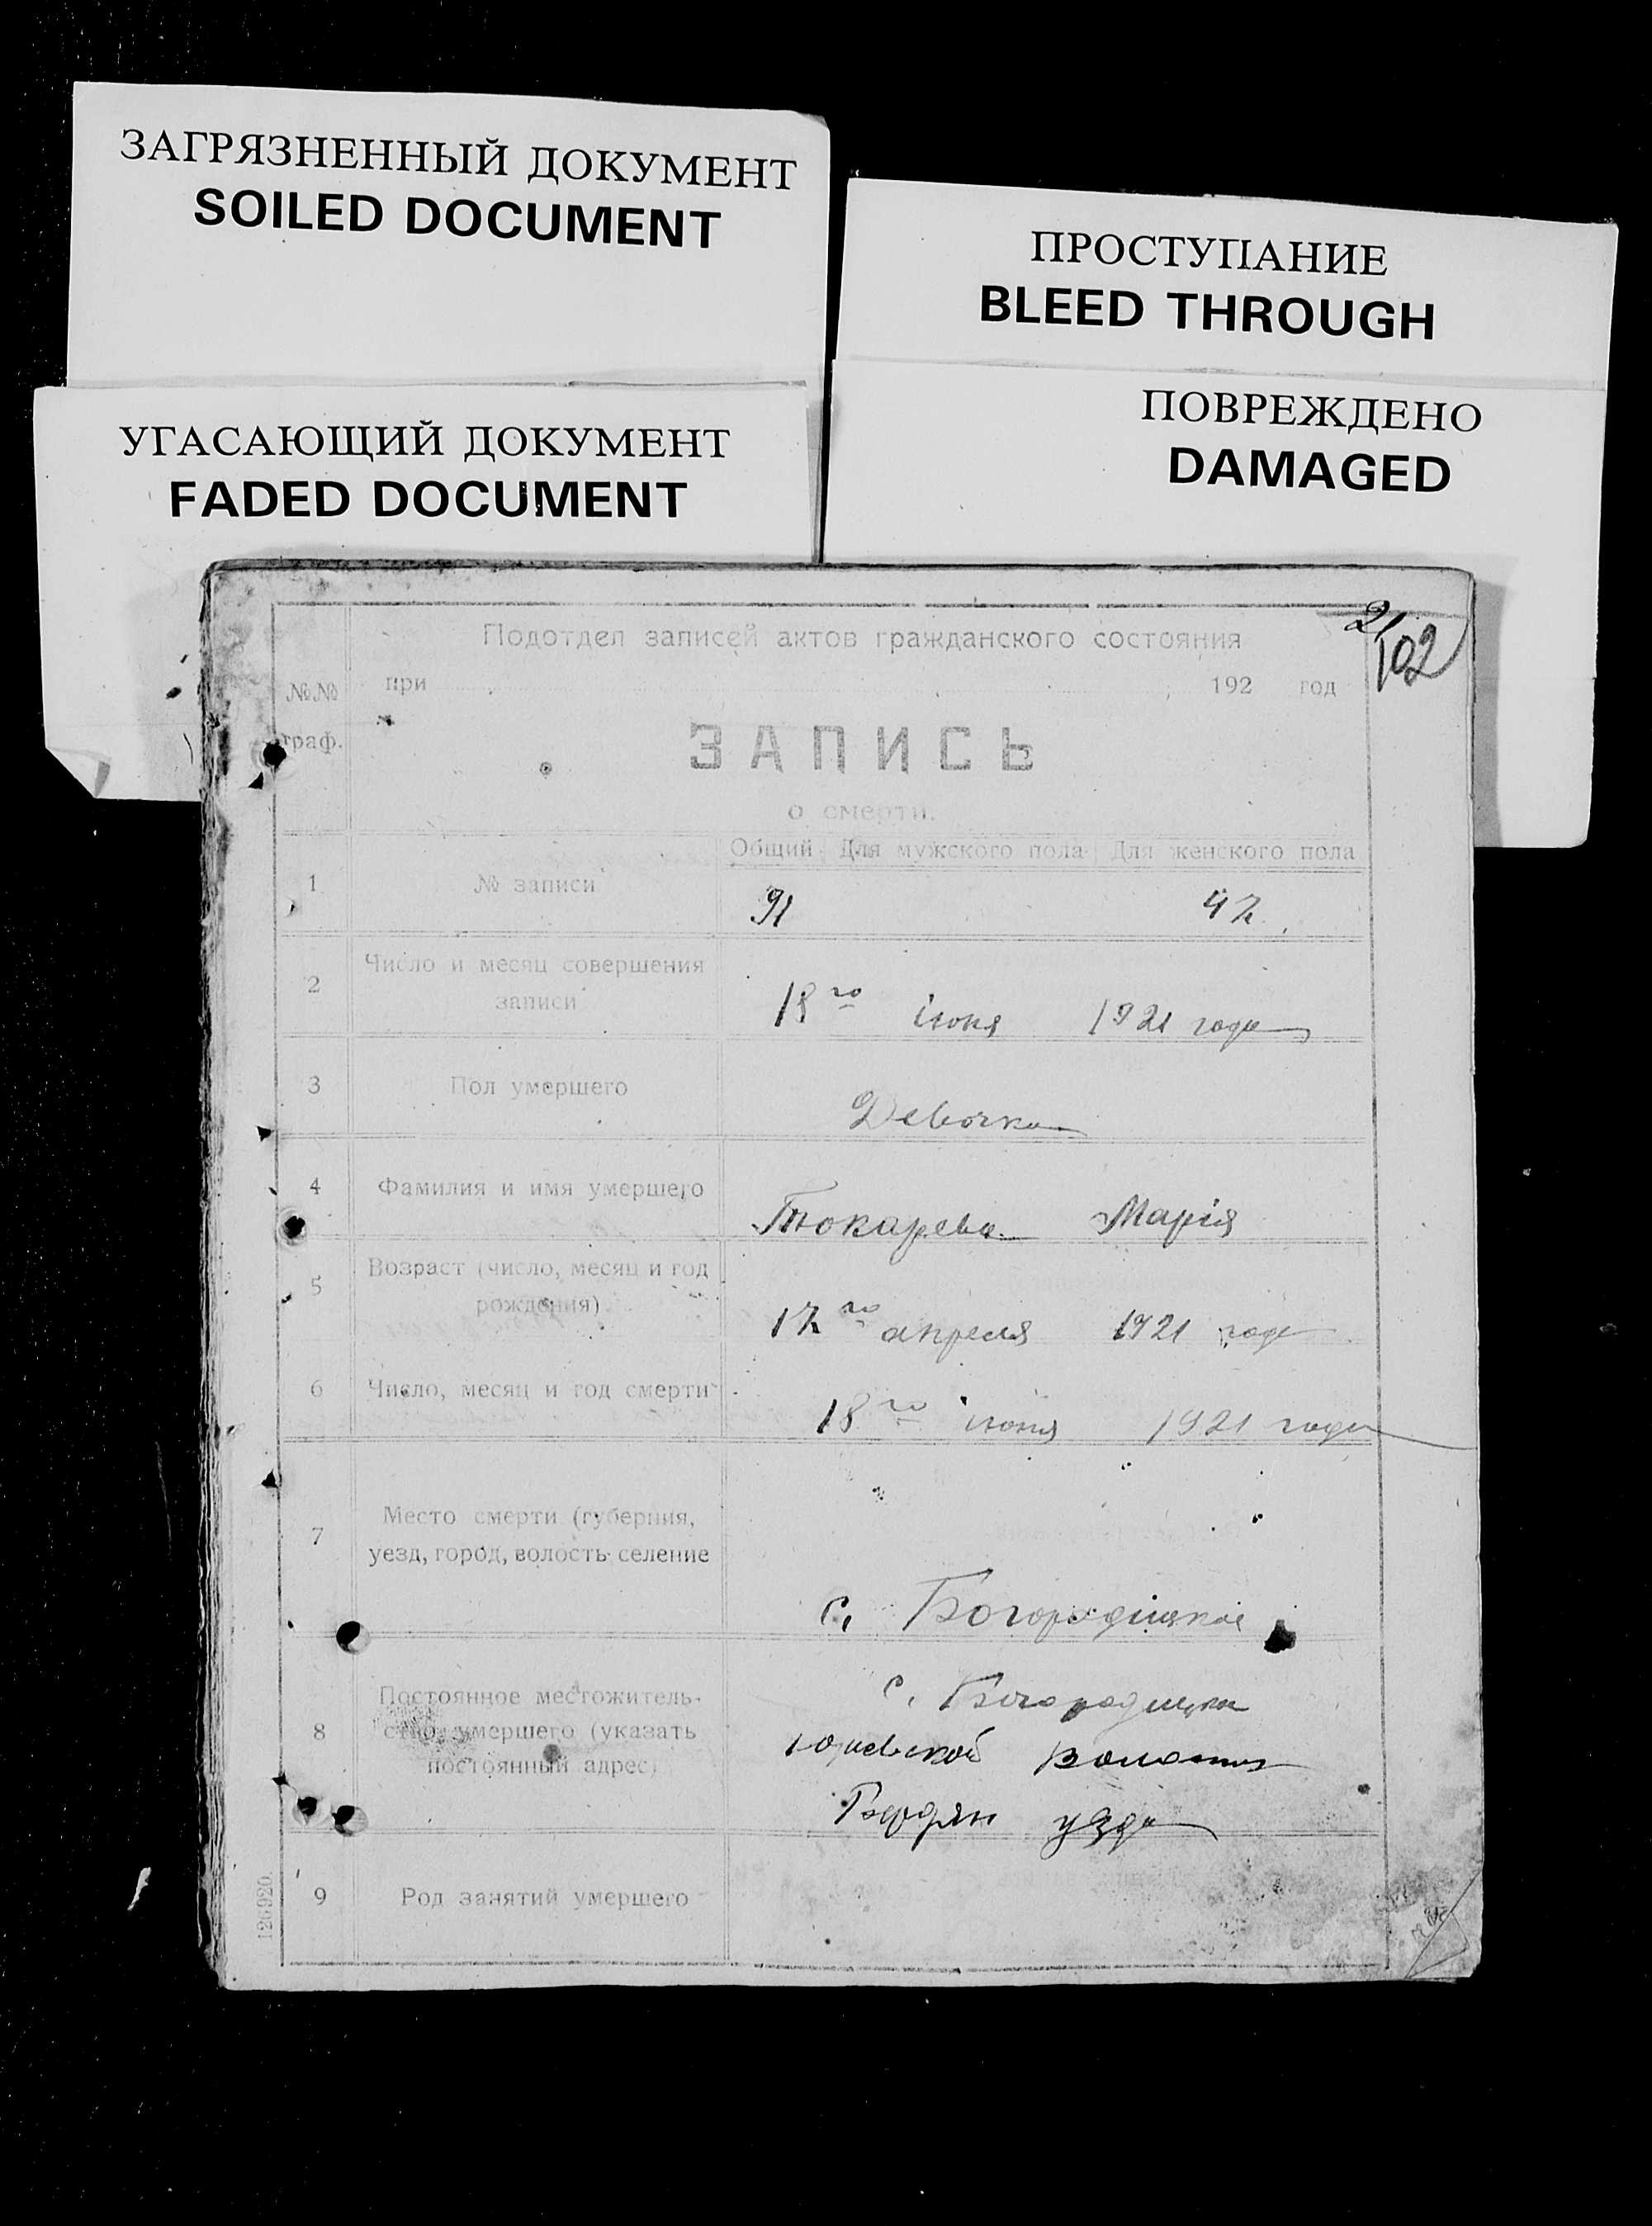 ЗАГРЯЗНЕННЫЙ ДОКУМЕНТ
SOILED DOCUMENT
ПРОСТУПАНИЕ
BLEED THROUGH
УГАСАЮЩИЙ ДОКУМЕНТ
FADED DOCUMENT
ПОВРЕЖДЕНО
DAMAGED
102
Подотдел записей актов гражданского состояния
№№ граф.
при 192 год
ЗАПИСЬ
о смерти.
Общий Для мужского пола Для женского пола
1 № записи 91 47
2 Число и месяц совершения
записи
18го июня 1921 года
3 Пол умершего Девочка
4 Фамилия и имя умершего Токарева Марія
5 Возраст (число, месяц и год
рождения)
17го апреля 1921 года
6 Число, месяц и год смерти 18го июня 1921 года
7 Место смерти (губерния,
уезд, город, волость селение
с. Богородицкое
8 Постоянное местожитель-
ство умершего (указать
постоянный адрес)
с. Богородицкое
волости
Бердян уезда
9 Род занятий умершего
126920